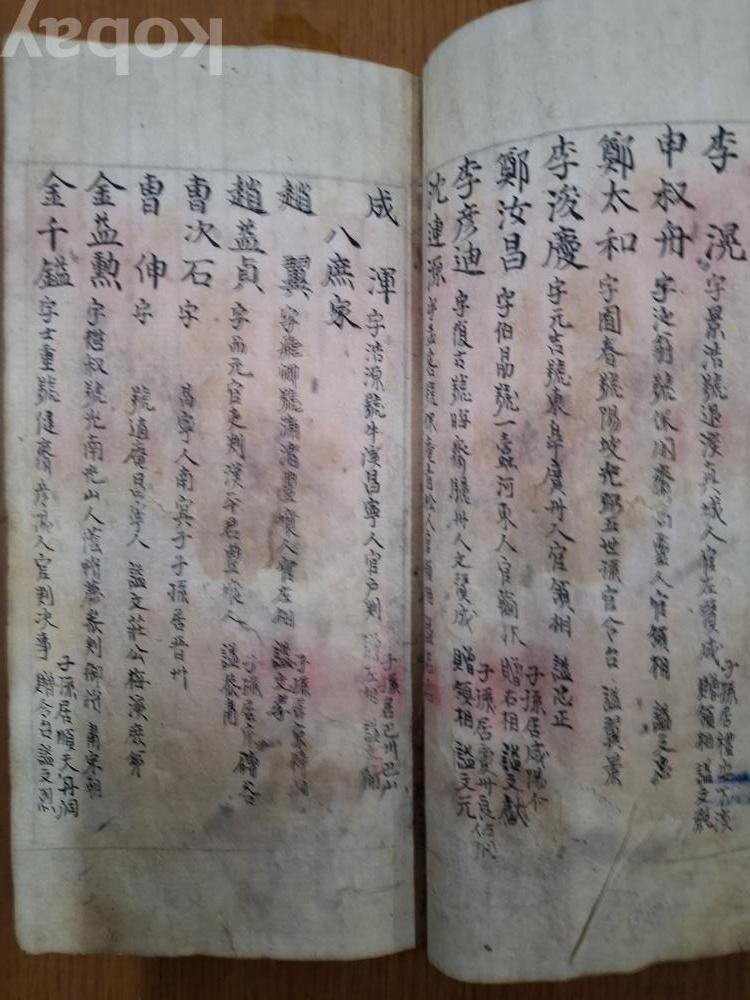 李滉 字景浩號退溪真城人官左贊成 贈領相 謚文純 子孫居禮安下溪
申叔舟 字泛翁號保閒齋高靈人官領相 謚文忠
鄭太和 字囿春號陽坡光弼五世孫官令台 謚翼景
李浚慶 字元吉號東皐廣州人官領相 謚忠正
鄭汝昌 字伯勗號一蠹河東人官 贈右相 謚文獻 子孫居咸陽
李彦迪 字復古號晦齋驪州人文贊成 贈領相 謚文元 子孫居慶州良佐洞
沈連源 字孟容號保庵青松人官領相
成渾 字浩源號牛溪昌寧人官戶判 贈左相 謚文簡 子孫居
八庶家
趙翼 字飛卿號浦渚豊壤人官左相 謚文孝 子孫居
趙益貞 字而元官吏判漢平君豊壤人 謚恭肅 子孫居
曺次石 字 昌寧人南冥子子孫居晋州
曺伸 字 號適庵昌寧人 謚文莊公梅溪庶弟
金益勲 字懋叔號光南光山人蔭 御將 肅宗朝
金千鎰 字士重號健齋彦陽人官判決事 贈令台謚文烈 子孫居順天丹洞
kobay